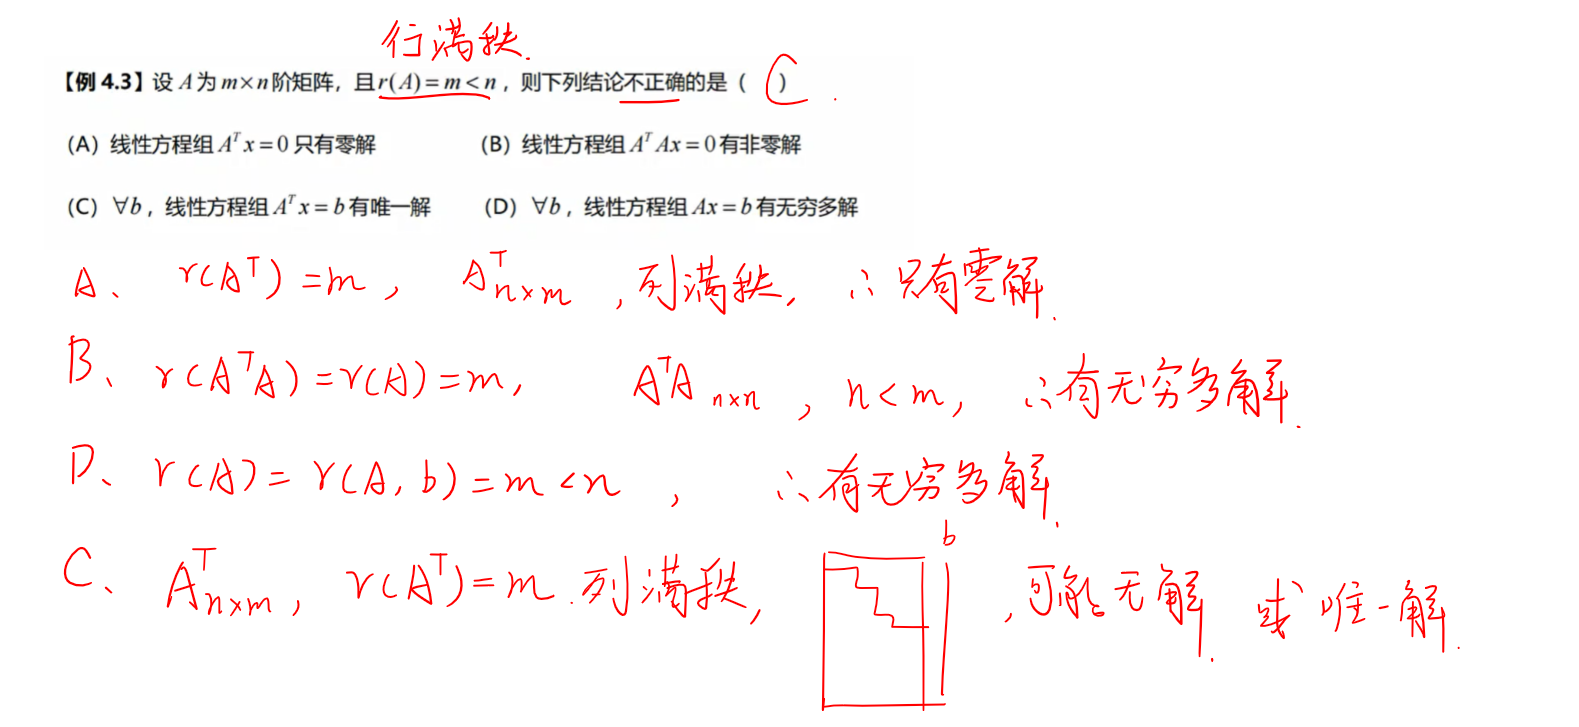 行满秩.
【例 4.3】设 A 为 m×n 阶矩阵，且 r(A)=m<n，则下列结论不正确的是（ C ）.
(A) 线性方程组 A^T x=0 只有零解 (B) 线性方程组 A^T Ax=0 有非零解
(C) ∀b，线性方程组 A^T x=b 有唯一解 (D) ∀b，线性方程组 Ax=b 有无穷多解
A、 r(A^T)=m， A^T_{n×m}，列满秩，∴只有零解.
B、 r(A^T A)=r(A)=m， A^T A_{n×n}，n<m，∴有无穷多解.
D、 r(A)=r(A,b)=m<n， ∴有无穷多解.
b
C、 A^T_{n×m}，r(A^T)=m.列满秩， ，可能无解.或唯一解.